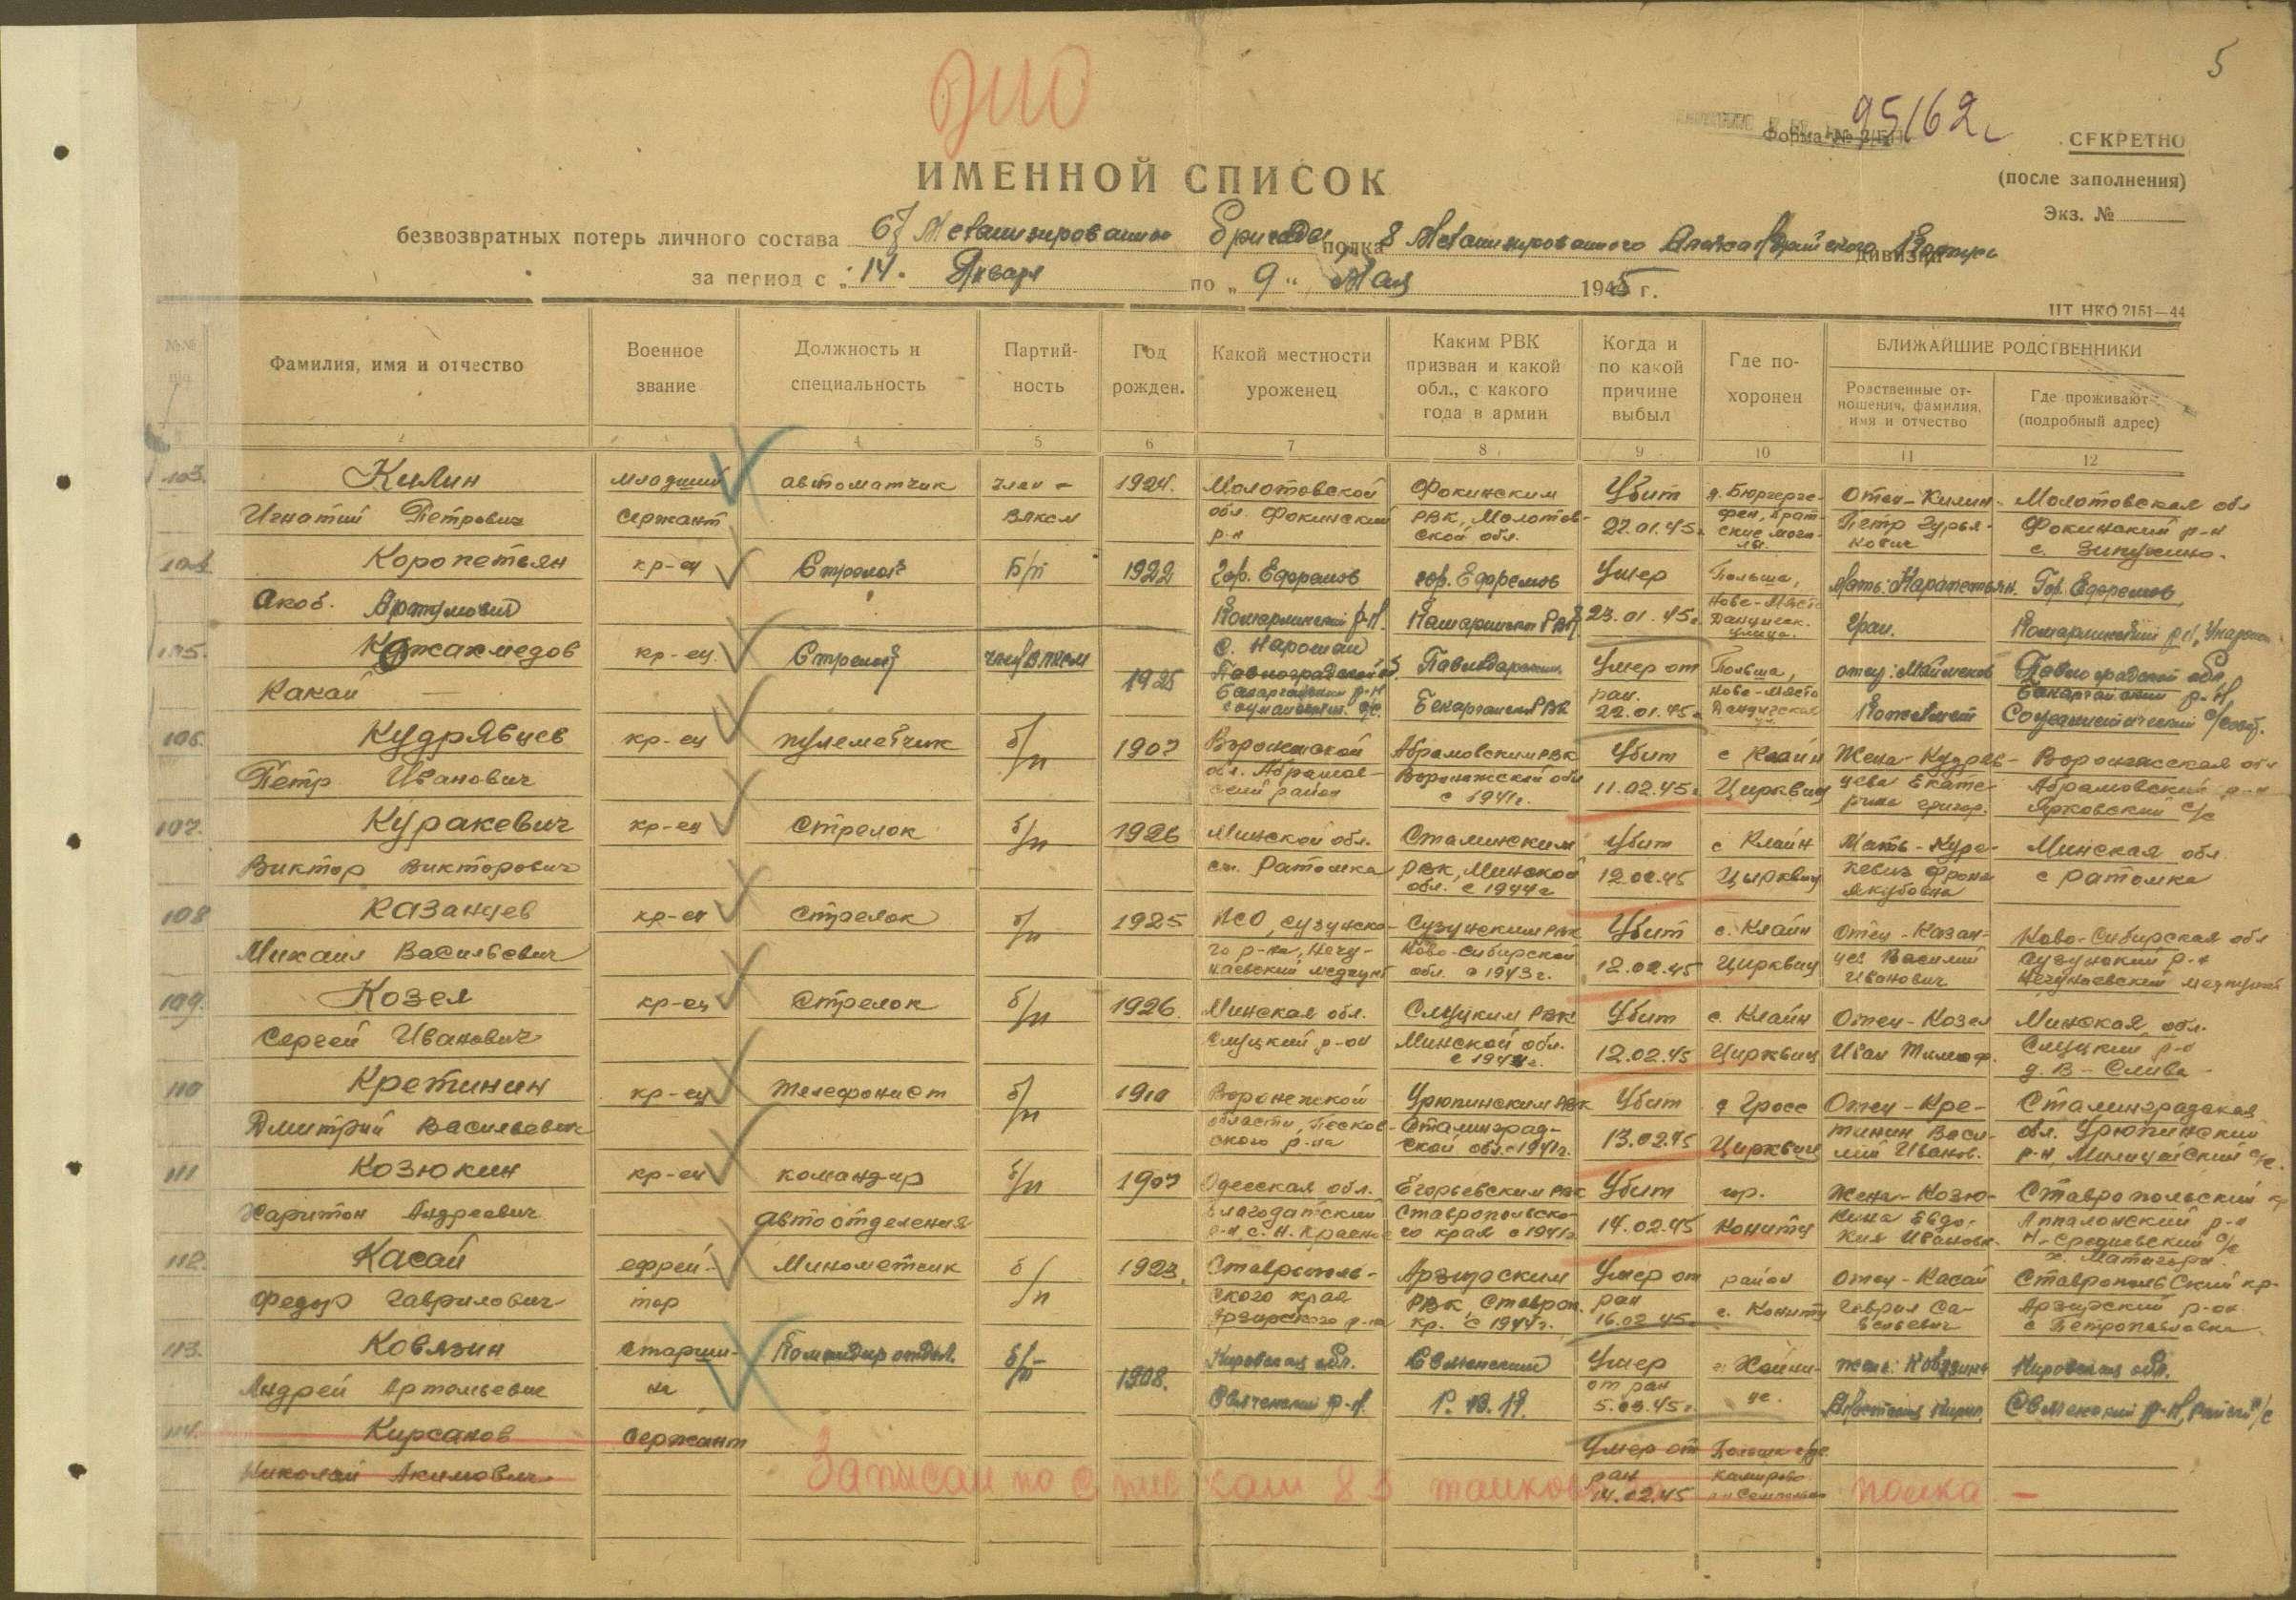 5
95162с
Форма № 2/БП
СЕКРЕТНО
(после заполнения)
Экз. №
ИМЕННОЙ СПИСОК
безвозвратных потерь личного состава 67 Механизированной бригады полка 8 Механизированного Александрийского Корпуса дивизии
за период с „14" Января по „9" Мая 1945 г.
ЦТ НКО 2151—44
№№ п/п
Фамилия, имя и отчество
Военное звание
Должность и специальность
Партийность
Год рожден.
Какой местности уроженец
Каким РВК призван и какой обл., с какого года в армии
Когда и по какой причине выбыл
Где похоронен
БЛИЖАЙШИЕ РОДСТВЕННИКИ
Родственные отношения, фамилия, имя и отчество
Где проживают (подробный адрес)
2 4 5 6 7 8 9 10 11 12
103. Килин младший автоматчик член 1924. Молотовской Фокинским Убит д. Бюргерге- Отец - Килин Молотовская обл
Игнатий Петрович сержант ВЛКСМ обл. Фокинский РВК, Молотов- 22.01.45г. Петр Гурья- Фокинский р-н
р-н ской обл. ские моги- нович с.
лы.
104. Коропетьян кр-ец Стрелок б/п 1922 гор. Ефремов гор. Ефремов Умер Польша, мать: Карапетьян Гор. Ефремов
Акоб. 23.01.45г. Нове-Място
улица.
105. Кожахмедов кр-ец Стрелок член ВЛКСМ 1925 Умер от Польша, отец:
Какай ран. Нове-Място
22.01.45г.
106. Кудрявцев кр-ец пулеметчик б/п 1907 Воронежской Абрамовским РВК Убит с Клайн Жена - Кудряв- Воронежская обл
Петр Иванович обл. Абрамов- Воронежской обл 11.02.45г Цирквиц цева Екате- Абрамовский р-н
ский район с 1941г. рина Григор. с/с
107. Куракевич кр-ец стрелок б/п 1926 Минской обл. Сталинским Убит с Клайн Мать - Кура- Минская обл.
Виктор Викторович ст. Ратомка РВК, Минской 12.02.45 Цирквиц кевич с Ратомка
обл. с 1944г Якубовна
108 Казанцев кр-ец стрелок б/п 1925 НСО, Сузунско- Сузунским РВК Убит с. Клайн отец - Казан- Ново-Сибирская обл
Михаил Васильевич го р-на, Нечу- Ново-Сибирской 12.02.45 Цирквиц цев Василий Сузунский р-н
наевский медпункт обл. с 1943г. Иванович Нечунаевский медпункт
109. Козел кр-ец стрелок б/п 1926. Минская обл. Слуцким РВК Убит с. Клайн Отец - Козел Минская обл.
Сергей Иванович Слуцкий р-он Минской обл. 12.02.45 Цирквиц Иван Тимоф. Слуцкий р-н
с 1944г. д. В - Слива
110 Кретинин кр-ец телефонист б/п 1910 Воронежской Урюпинским РВК Убит Гросс Отец - Кре- Сталинградская
Дмитрий Васильевич области, Песков- Сталинград- 13.02.45 Цирквиц тинин Васи- обл. Урюпинский
ского р-на ской обл. с 1941г. лий Иванов. р-н, с/с.
111 Козюкин кр-ец командир б/п 1907 Одесская обл. Егорьевским РВК Убит гор. Жена - Козю- Ставропольский кр
Харитон Андреевич автоотделения Благодатский Ставропольско- 14.02.45 Конитц кина Евдо- р-н
р-н го края с 1941г кия Ивановн. с/с
112. Касай ефрей- Минометчик б/п 1923. Ставрополь- Арзгирским Умер от район отец - Касай Ставропольский кр-
Федор Гаврилович тор ского края РВК, Ставроп. ран г. Конитц Гаврил Са- Арзгирский р-он
Арзгирского р-на кр. с 1944г. 16.02.45г. вельевич с Петропавловка
113. Ковязин старши- Командир отдел. б/п 1908. Кировская обл. Свеченский Умер жена: Ковязина Кировская обл.
Андрей Артомьевич на Свеченский р-н. Р.В.К. от ран Свеченский р-н, с/с
5.03.45г.
114. Кирсанов сержант Умер от Польша
Николай Акимович ран
14.02.45
Записан по спискам 83 танкового полка —